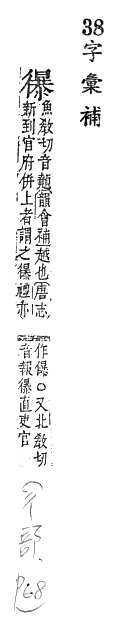 38字彙補
忁
魚敎切音韻會補越也唐志
新到官府倂上者謂之忁禮亦
作儤○又北敎切
音報忁直吏官
(彳部 P68)